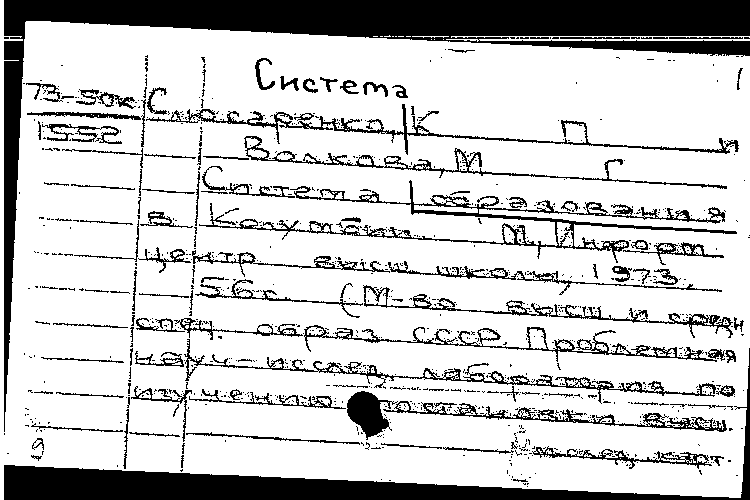 Система
73-50к Слюсаренко, К П и
1552 Волкова, М Г
Система образования
в Колумбии. М., Информ.
центр высш. школы, 1973.
56 с. (М-во высш. и средн
спец. образ СССР. Проблемная
науч-исслед. лаборатория по
изучению постановки высш.
См. след. карт.
9